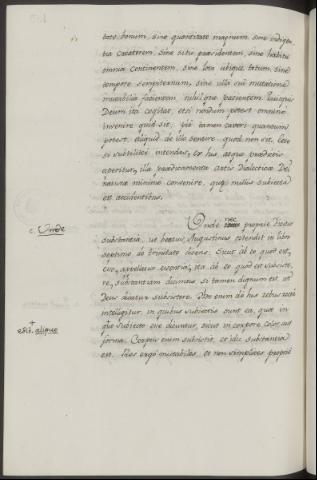 tate bonum, sine quantitate magnum, sine indigen
tia creatorem, sine situ praesidentem, sine habitu
omnia continentem, sine loco ubique totum, sine
tempore sempiternum, sine ulla sui mutatione
mutabilia facientem, nihilque patientem. Quisquis
Deum ita cogitat, etsi nondum potest omnino
invenire quid sit, pie tamen cavet quantum
potest, aliquid de illo sentire quod non sit. Ecce
si subtiliter intendas, ex his, atque praedictis
aperitur, illa praedicamenta artis Dialecticae Dei
naturae minime convenire, quae nullis subiecta
est accidentibus.
c. Unde
Unde nec proprie dicitur
substantia, ut beatus Augustinus ostendit in libro
septimo de trinitate dicens: Sicut ab eo quod est,
esse, appellatur essentia, ita ab eo quod est subsiste
re, substantiam dicimus si tamen dignum est, ut
Deus dicatur subsistere. Hoc enim de his rebus recte
intelligitur, in quibus subiectis sunt ea, quae in
+
edit. alique
que subiecto esse dicuntur, sicut in corpore color, aut
forma. Corpus enim subsistit, et ideo substantia
est. Res ergo mutabiles, et non simplices proprie